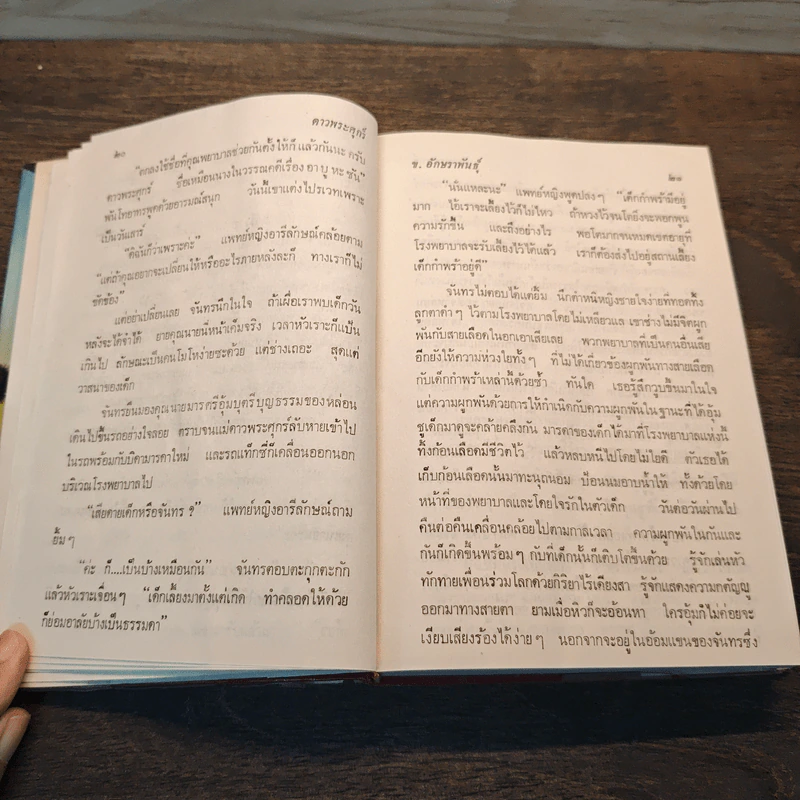 ดาวพระศุกร์
๒๐
"ตกลงใช้ชื่อที่คุณพยาบาลช่วยกันตั้งให้ก็แล้วกันนะ ครับ
ดาวพระศุกร์ ชื่อเหมือนนางในวรรณคดีเรื่อง อา บู หะ ซัน"
พันโทยาทรพูดด้วยอารมณ์สนุก วันนี้เขาแต่งไปรเวทเพราะ
เป็นวันเสาร์
"ดิฉันก็ว่าเพราะค่ะ" แพทย์หญิงอารีลักษณ์คล้อยตาม
"แต่ถ้าคุณอยากจะเปลี่ยนให้หรืออะไรภายหลังละก็ ทางเราก็ไม่
ขัดข้อง"
แต่อย่าเปลี่ยนเลย จันทรนึกในใจ ถ้าเผื่อเราพบเด็กวัน
หลังจะได้จำได้ ยายคุณนายนี่หน้าเค็มจริง เวลาหัวเราะก็แป้น
เกินไป ลักษณะเป็นคนโมโหง่ายซะด้วย แต่ช่างเถอะ สุดแต่
วาสนาของเด็ก
จันทรยืนมองคุณนายมารศรีอุ้มบุตรีบุญธรรมของหล่อน
เดินไปขึ้นรถอย่างใจลอย ตราบจนแม่ดาวพระศุกร์ลับหายเข้าไป
ในรถพร้อมกับบิดามารดาใหม่ และรถแท็กซี่ก็เคลื่อนออกนอก
บริเวณโรงพยาบาลไป
"เสียดายเด็กหรือจันทร ?" แพทย์หญิงอารีลักษณ์ถาม
ยิ้ม ๆ
"ค่ะ ก็....เป็นบ้างเหมือนกัน" จันทรตอบตะกุกตะกัก
แล้วหัวเราะเจื่อน ๆ "เด็กเลี้ยงมาตั้งแต่เกิด ทำคลอดให้ด้วย
ก็ย่อมอาลัยบ้างเป็นธรรมดา"
ข. อักษราพันธุ์
๒๑
"นั่นแหละนะ" แพทย์หญิงพูดปลง ๆ "เด็กกำพร้ามีอยู่
มาก ไอ้เราจะเลี้ยงไว้ก็ไม่ไหว ถ้าหวงไว้จนโตยิ่งจะพอกพูน
ความรักขึ้น และถึงอย่างไร พอโตมากจนหมดเขตอายุที่
โรงพยาบาลจะรับเลี้ยงไว้ได้แล้ว เราก็ต้องส่งไปอยู่สถานเลี้ยง
เด็กกำพร้าอยู่ดี"
จันทรไม่ตอบได้แต่ยิ้ม นึกตำหนิหญิงชายใจง่ายที่ทอดทิ้ง
ลูกตาดำ ๆ ไว้ตามโรงพยาบาลโดยไม่เหลียวแล เขาช่างไม่มีจิตผูก
พันกับสายเลือดในอกเอาเสียเลย พวกพยาบาลที่เป็นคนอื่นเสีย
อีกยังให้ความห่วงใยทั้ง ๆ ที่ไม่ได้เกี่ยวข้องผูกพันทางสายเลือด
กับเด็กกำพร้าเหล่านี้ด้วยซ้ำ ทันใด เธอรู้สึกวูบขึ้นมาในใจ
แต่ความผูกพันด้วยการให้กำเนิดกับความผูกพันในฐานะที่ได้อุ้ม
ชูเด็กมาดูจะคล้ายคลึงกัน มารดาของเด็กได้มาที่โรงพยาบาลแห่งนี้
ทิ้งก้อนเลือดมีชีวิตไว้ แล้วหลบหนีไปโดยไม่ไยดี ตัวเธอได้
เก็บก้อนเลือดนั้นมาทะนุถนอม ป้อนนมอาบน้ำให้ ทั้งด้วยโดย
หน้าที่ของพยาบาลและโดยใจรักในตัวเด็ก วันต่อวันผ่านไป
คืนต่อคืนเคลื่อนคล้อยไปตามกาลเวลา ความผูกพันในกันและ
กันก็เกิดขึ้นพร้อม ๆ กับที่เด็กนั้นก็เติบโตขึ้นด้วย รู้จักเล่นหัว
ทักทายเพื่อนร่วมโลกด้วยกิริยาไร้เดียงสา รู้จักแสดงความกตัญญู
ออกมาทางสายตา ยามเมื่อหิวก็จะอ้อนหา ใครอุ้มก็ไม่ค่อยจะ
เงียบเสียงร้องได้ง่าย ๆ นอกจากจะอยู่ในอ้อมแขนของจันทรซึ่ง